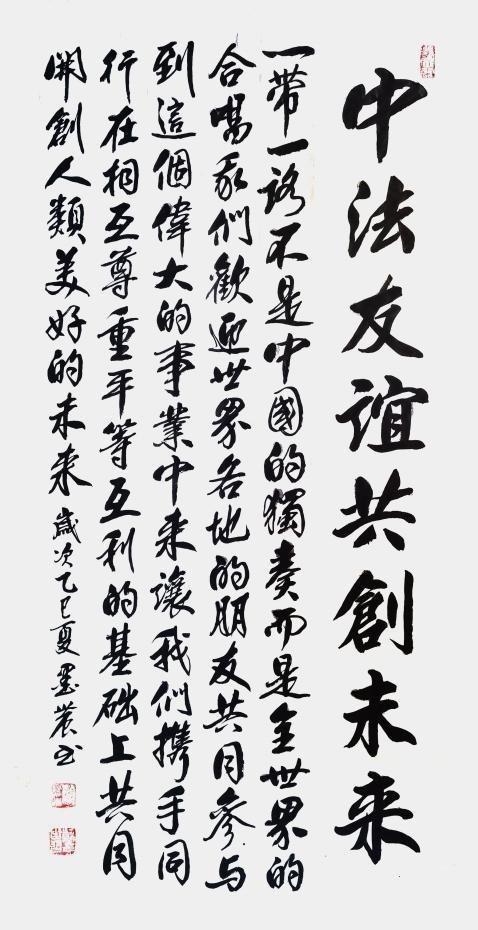 中法友谊共創未来
一带一路不是中國的獨奏而是全世界的
合唱我們歡迎世界各地的朋友共同參与
到這個偉大的事業中来讓我们携手同
行在相互尊重平等互利的基础上共同
開創人類美好的未来
歲次乙巳夏墨農书